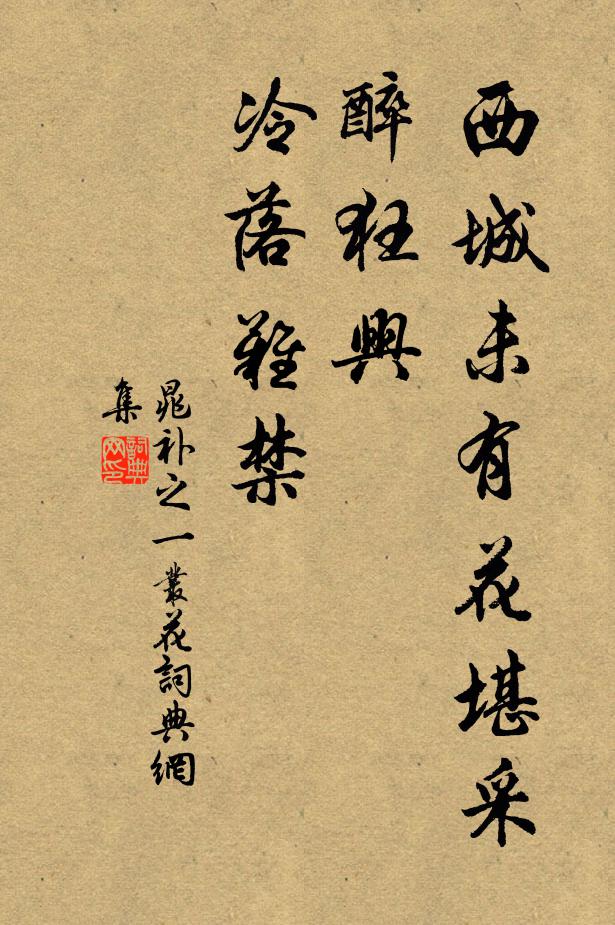 西城未有花堪采
醉狂興
冷落難禁
晁补之一叢花詞典網
集
詞典网印